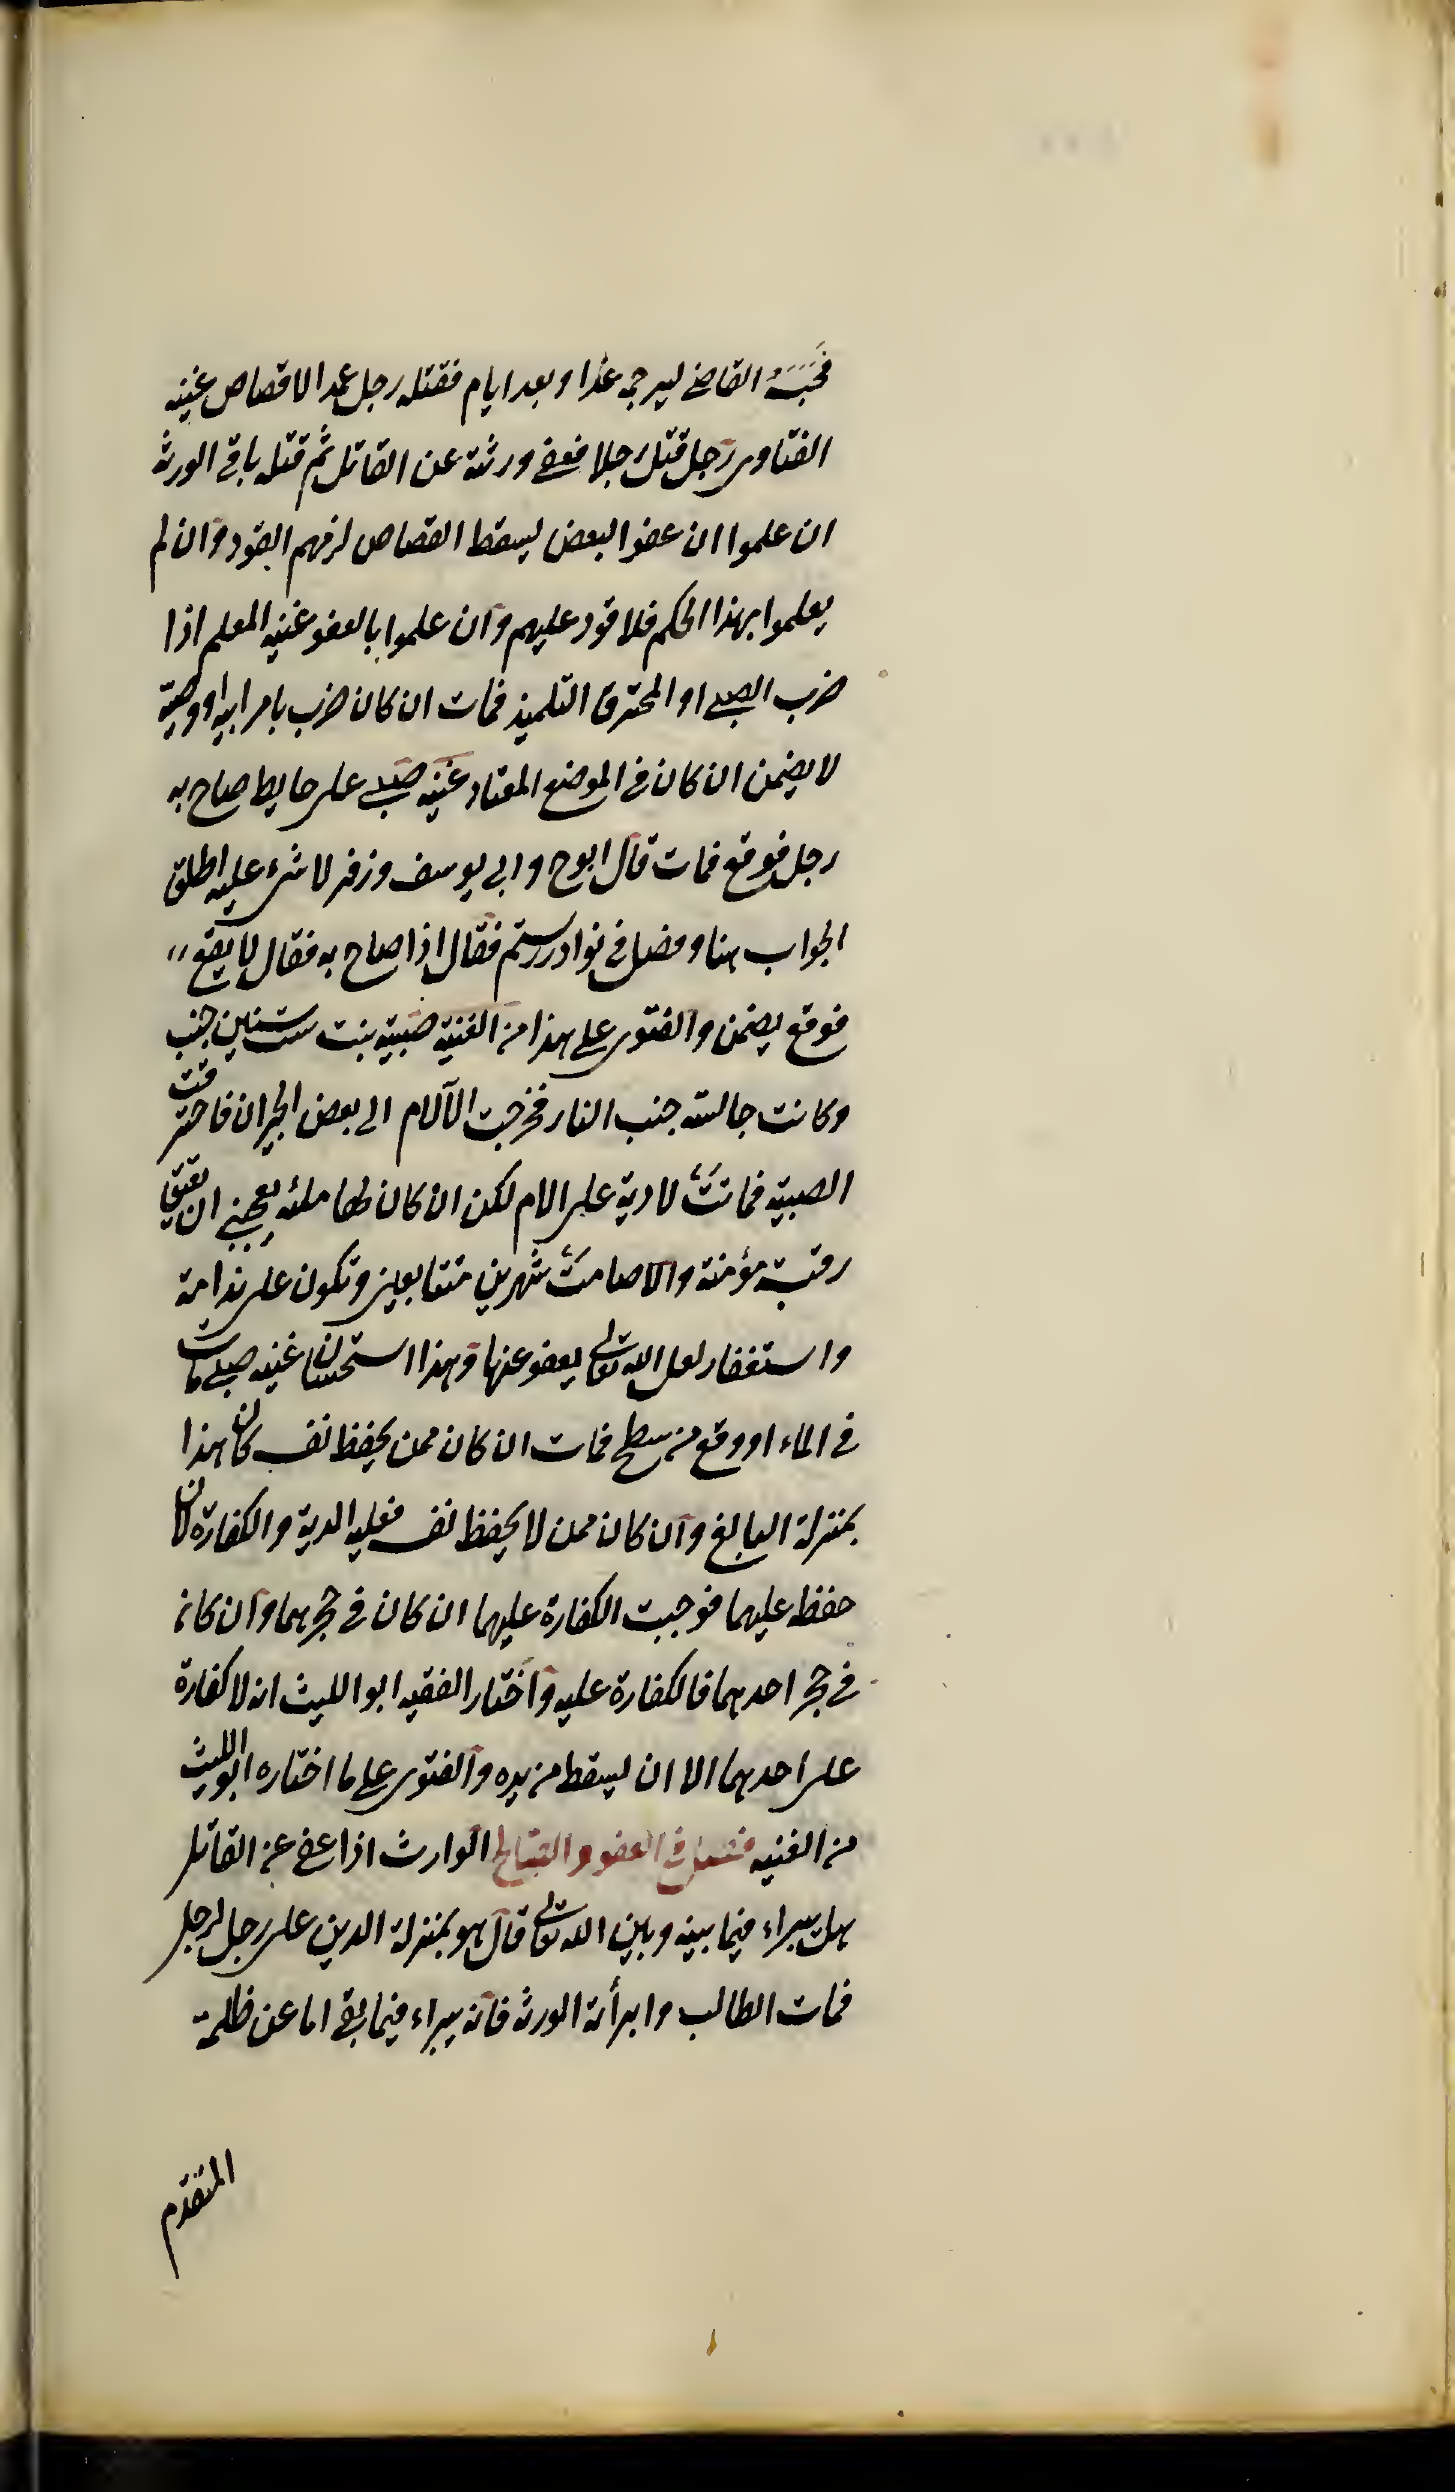 فحبسه القاضي ليرجمه غدا او بعد ايام فقتله رجل عمدا لا قصاص غنيه
الفتاوى رجل قتل رجلا فعفى ورثته عن القاتل ثم قتله باقى الورثه
ان علموا ان عفو البعض يسقط القصاص لزمهم القود وان لم
يعلموا بهذا الحكم فلا قود عليهم وان علموا بالعفو غنيه المعلم اذا
ضرب الصبى او المحترق التلميذ فمات ان كان ضرب بامر ابيه او وصيه
لا يضمن ان كان فى الموضع المعتاد غنيه صبى على حايط صاح به
رجل فوقع فمات قال ابوح وابى يوسف وزفر لا شئ عليه اطلق
الجواب هنا وفصل فى نوادر رستم فقال اذا صاح به فقال لا يقع
فوقع يضمن والفتوى على هذا من الغنية صبية بنت ست سنين جنب
وكانت جالسة جنب النار فخرجت الام الى بعض الجيران فاحترقت
الصبية فماتت لا دية على الام لكن ان كان لها ملئه يعجبنى ان تعتق
رقبة مؤمنة والا صامت شهرين متتابعين وتكون على ندامة
واستغفار لعل الله تعالى يعفو عنها وهذا استحسان غنيه صبى مات
فى الماء او وقع من سطح فمات ان كان ممن يحفظ نفسه كان هذا
بمنزلة البالغ وان كان ممن لا يحفظ نفسه فعليه الدية والكفارة لان
حفظه عليهما فوجبت الكفارة عليهما ان كان فى حجرهما وان كان
فى حجر احدهما فالكفارة عليه واختار الفقيه ابو الليث انه لا كفارة
على احدهما الا ان يسقط من يده والفتوى على ما اختاره ابو الليث
من الغنيه فصل فى العفو و الوارث اذا عفى عن القاتل
هل يبراء فيما بينه وبين الله تعالى قال هو بمنزلة الدين على رجل لرجل
فمات الطالب وابرأته الورثه فانه يبراء فيما بقى اما عن ظلمه
المتقدم